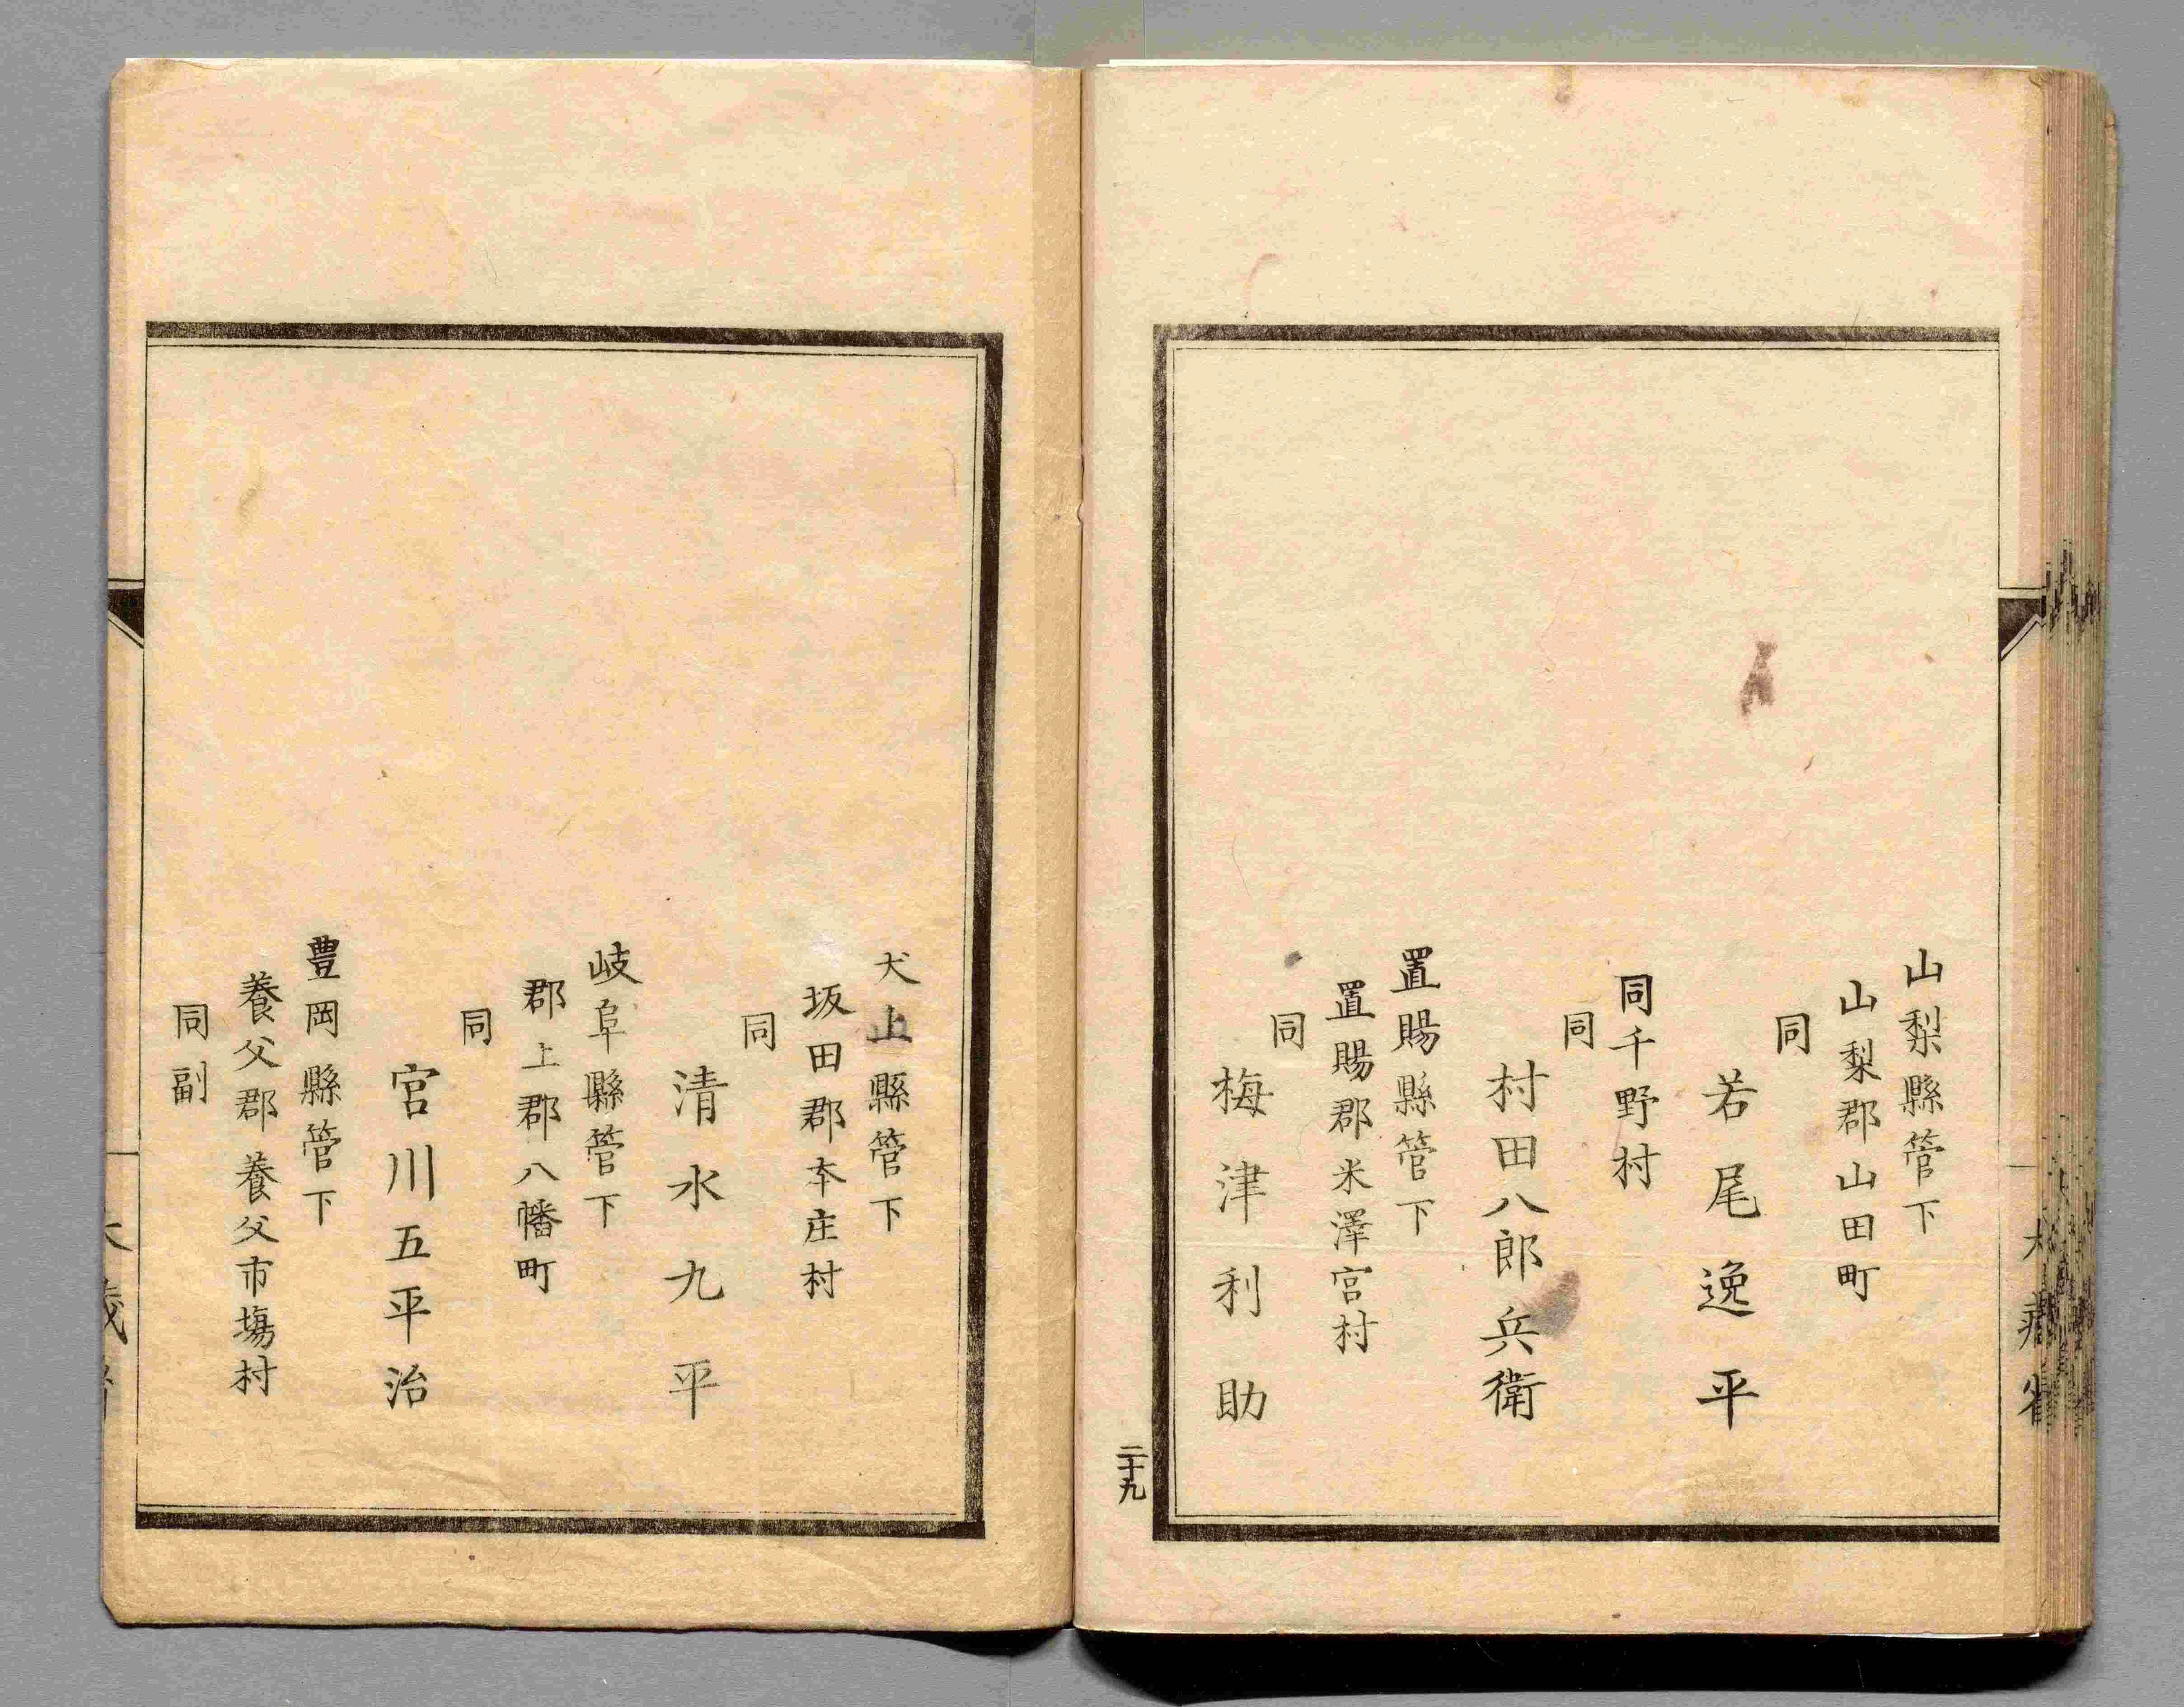 山梨縣管下
山梨郡山田町
同
若尾逸平
同千野村
同
村田八郎兵衛
置賜縣管下
置賜郡米澤宮村
同
梅津利助
二十九
犬上縣管下
坂田郡本庄村
同
清水九平
岐阜縣管下
郡上郡八幡町
同
宮川五平治
豊岡縣管下
養父郡養父市塲村
同副
大藏省